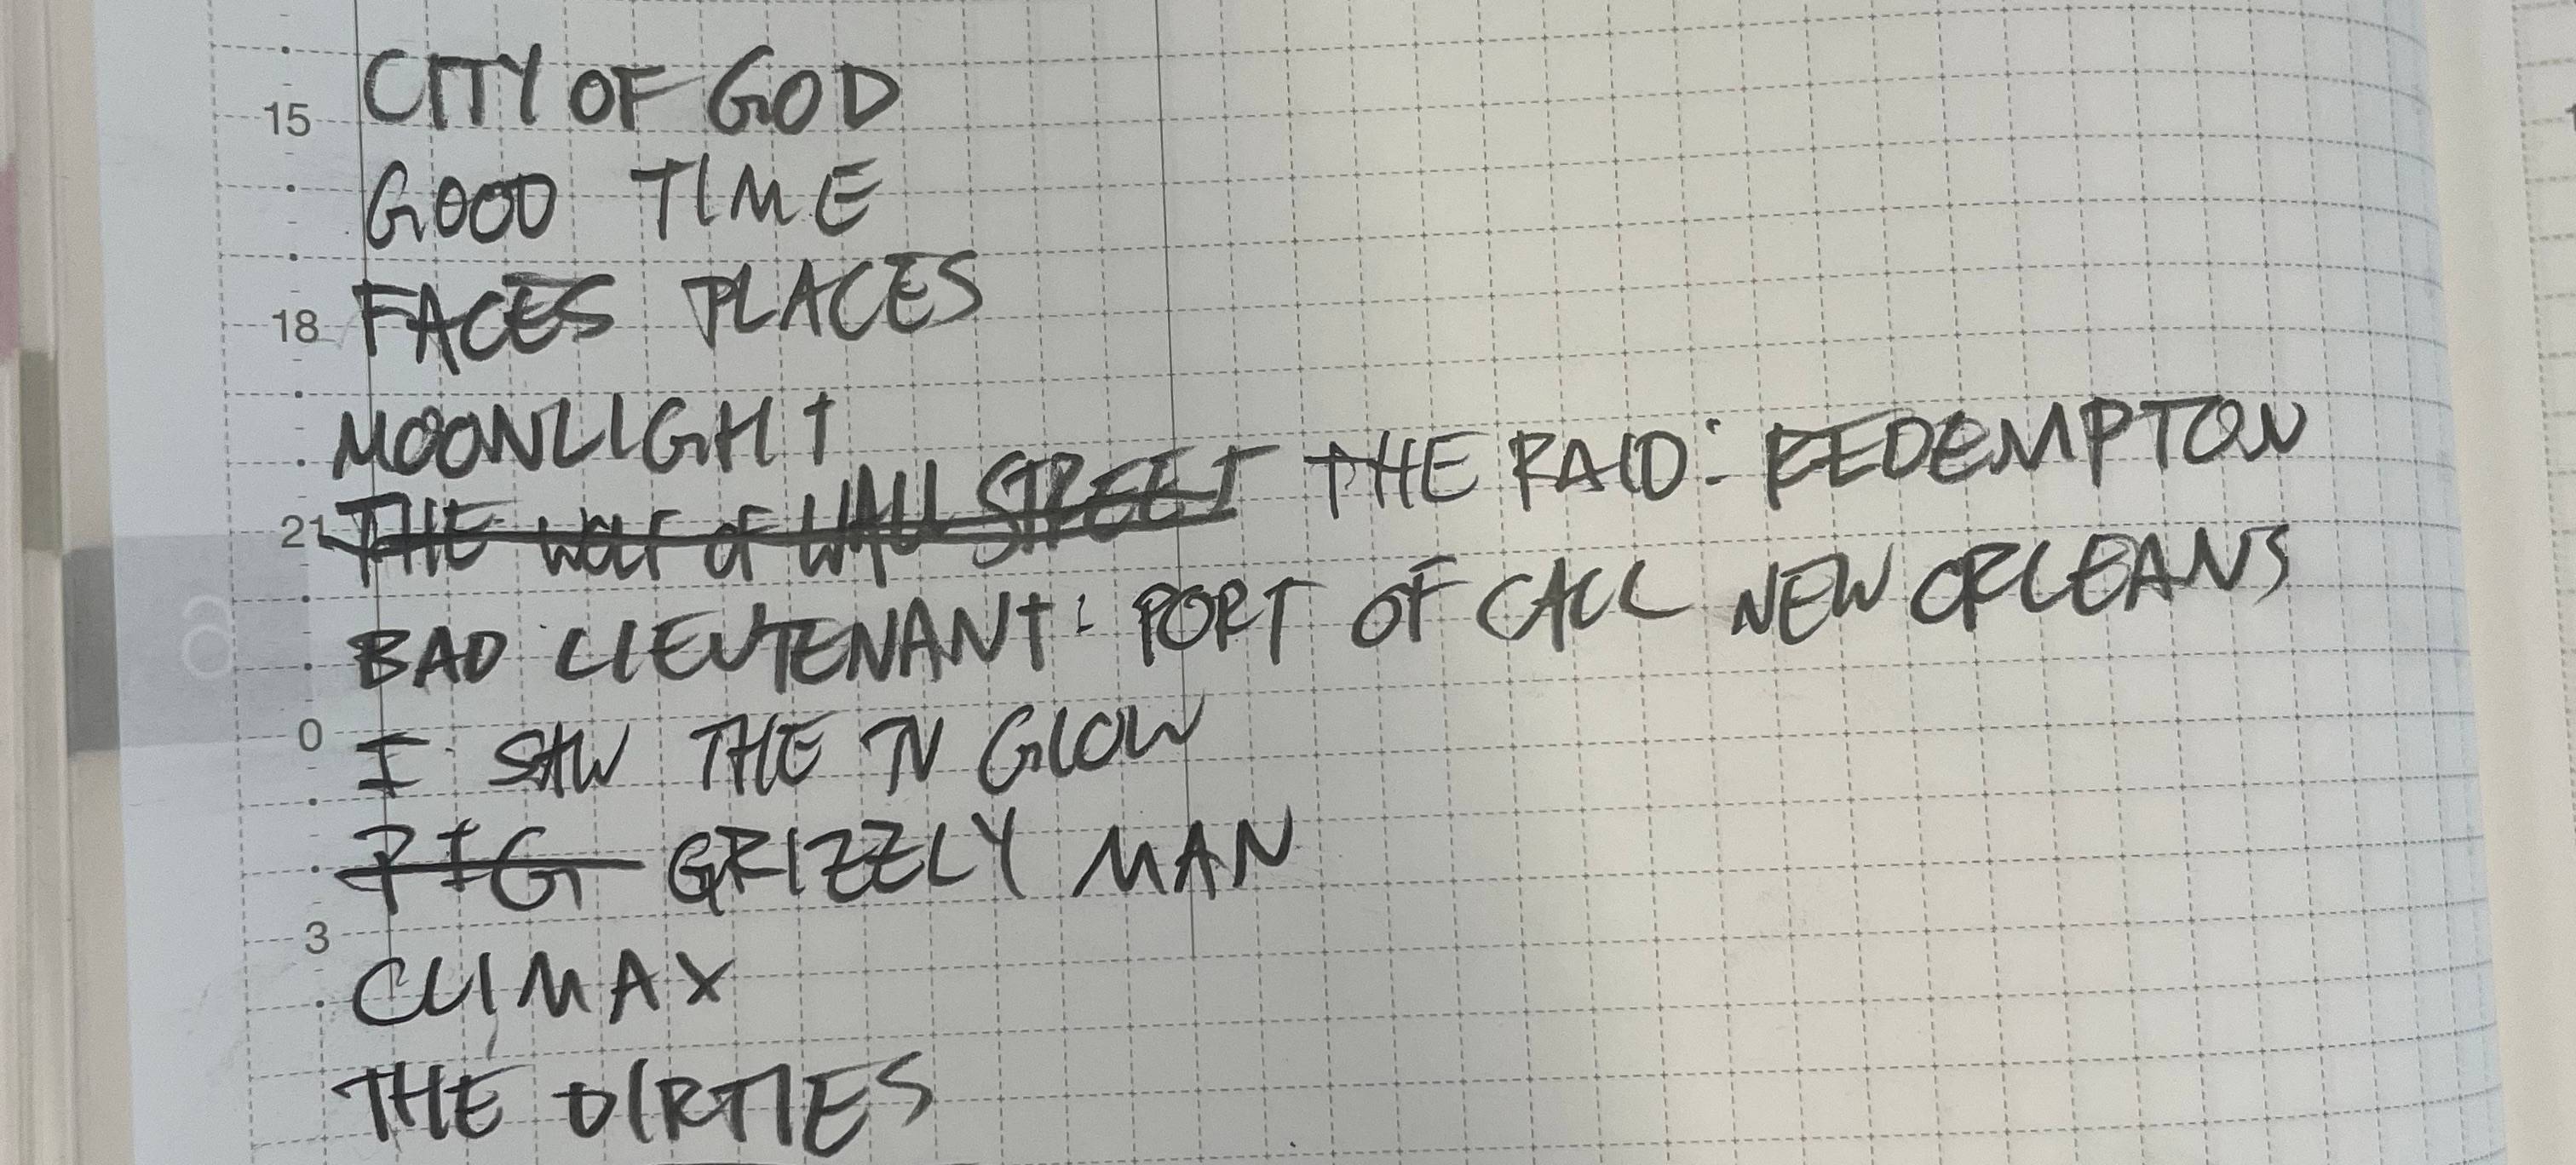 CITY OF GOD
15
GOOD TIME
FACES PLACES
18
MOONLIGHT
THE WOLF OF WALL STREET THE RAID: REDEMPTON
21
BAD LIEUTENANT: PORT OF CALL NEW ORLEANS
6
I SAW THE TV GLOW
0
PIG GRIZZLY MAN
3
CLIMAX
THE DIRTIES